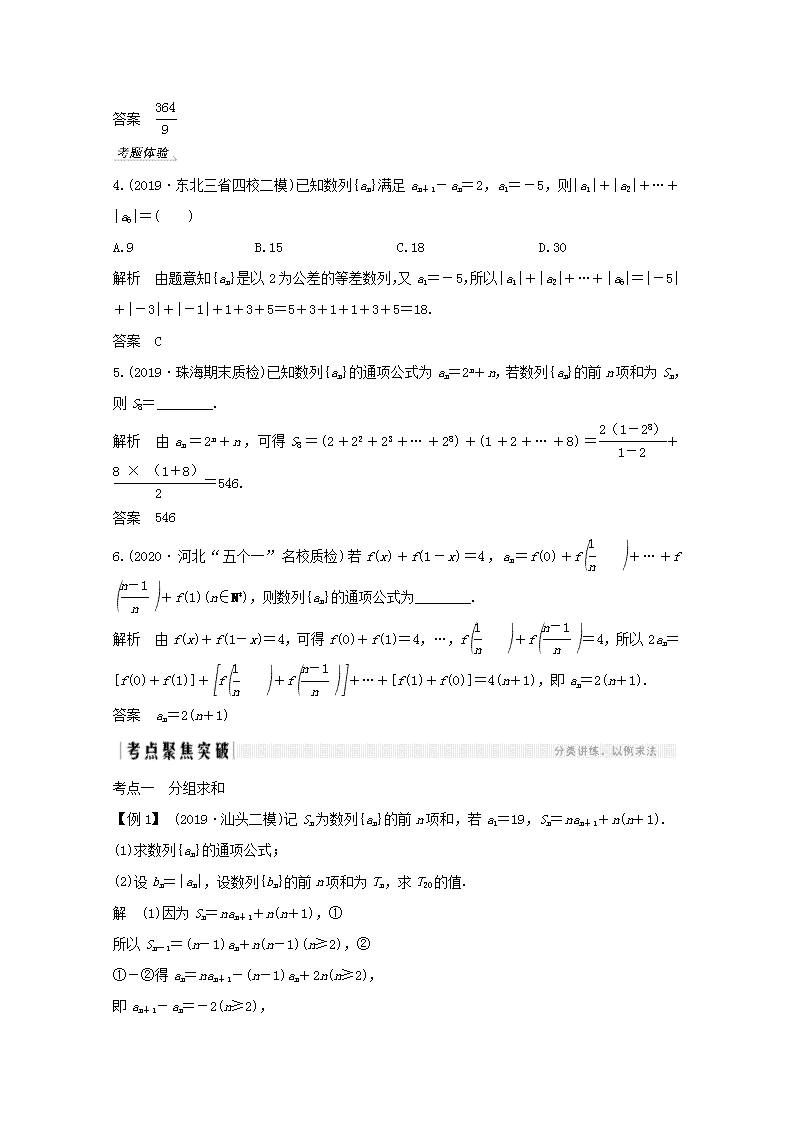 答案 364/9
考题体验
4.(2019·东北三省四校二模)已知数列{aₙ}满足 aₙ₊₁－aₙ＝2, a₁＝－5, 则|a₁|＋|a₂|＋…＋
|a₆|＝( )
A.9 B.15 C.18 D.30
解析 由题意知{aₙ}是以 2 为公差的等差数列,又 a₁＝－5,所以|a₁|＋|a₂|＋…＋|a₆|＝|－5|
＋|－3|＋|－1|＋1＋3＋5＝5＋3＋1＋1＋3＋5＝18.
答案 C
5.(2019·珠海期末质检)已知数列{aₙ}的通项公式为 aₙ＝2ⁿ＋n, 若数列{aₙ}的前 n 项和为 Sₙ,
则 S₈＝________.
解析 由 aₙ＝2ⁿ＋n, 可得 S₈＝(2＋2²＋2³＋…＋2⁸)＋(1＋2＋…＋8)＝2（1－2⁸）/1－2＋
8 × （1＋8）/2＝546.
答案 546
6.(2020·河北“五个一”名校质检)若 f(x)＋f(1－x)＝4, aₙ＝f(0)＋f(1/n)＋…＋f
(n－1/n)＋f(1)(n∈N*), 则数列{aₙ}的通项公式为________.
解析 由 f(x)＋f(1－x)＝4, 可得 f(0)＋f(1)＝4, …, f(1/n)＋f(n－1/n)＝4, 所以 2aₙ＝
[f(0)＋f(1)]＋[f(1/n)＋f(n－1/n)]＋…＋[f(1)＋f(0)]＝4(n＋1), 即 aₙ＝2(n＋1).
答案 aₙ＝2(n＋1)
考点聚焦突破 分类讲练，以例求法
考点一 分组求和
【例 1】 (2019·汕头二模)记 Sₙ为数列{aₙ}的前 n 项和, 若 a₁＝19, Sₙ＝naₙ₊₁＋n(n＋1).
(1)求数列{aₙ}的通项公式;
(2)设 bₙ＝|aₙ|, 设数列{bₙ}的前 n 项和为 Tₙ, 求 T₂₀的值.
解 (1)因为 Sₙ＝naₙ₊₁＋n(n＋1), ①
所以 Sₙ₋₁＝(n－1)aₙ＋n(n－1)(n≥2), ②
①－②得 aₙ＝naₙ₊₁－(n－1)aₙ＋2n(n≥2),
即 aₙ₊₁－aₙ＝－2(n≥2),